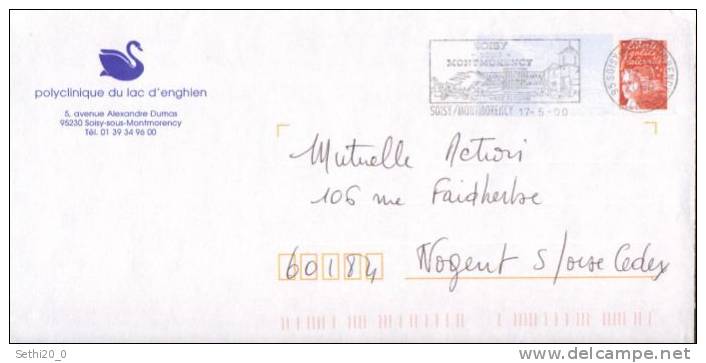 polyclinique du lac d'enghien
5, avenue Alexandre Dumas
95230 Soisy-sous-Montmorency
Tél. 01 39 34 96 00
SOISY
MONTMORENCY
SOISY/MONTMORENCY 17-5-00
Mutuelle Action
106 rue Faidherbe
60184 Nogent s/oise Cedex
Sethi20_0
www.delcampe.net